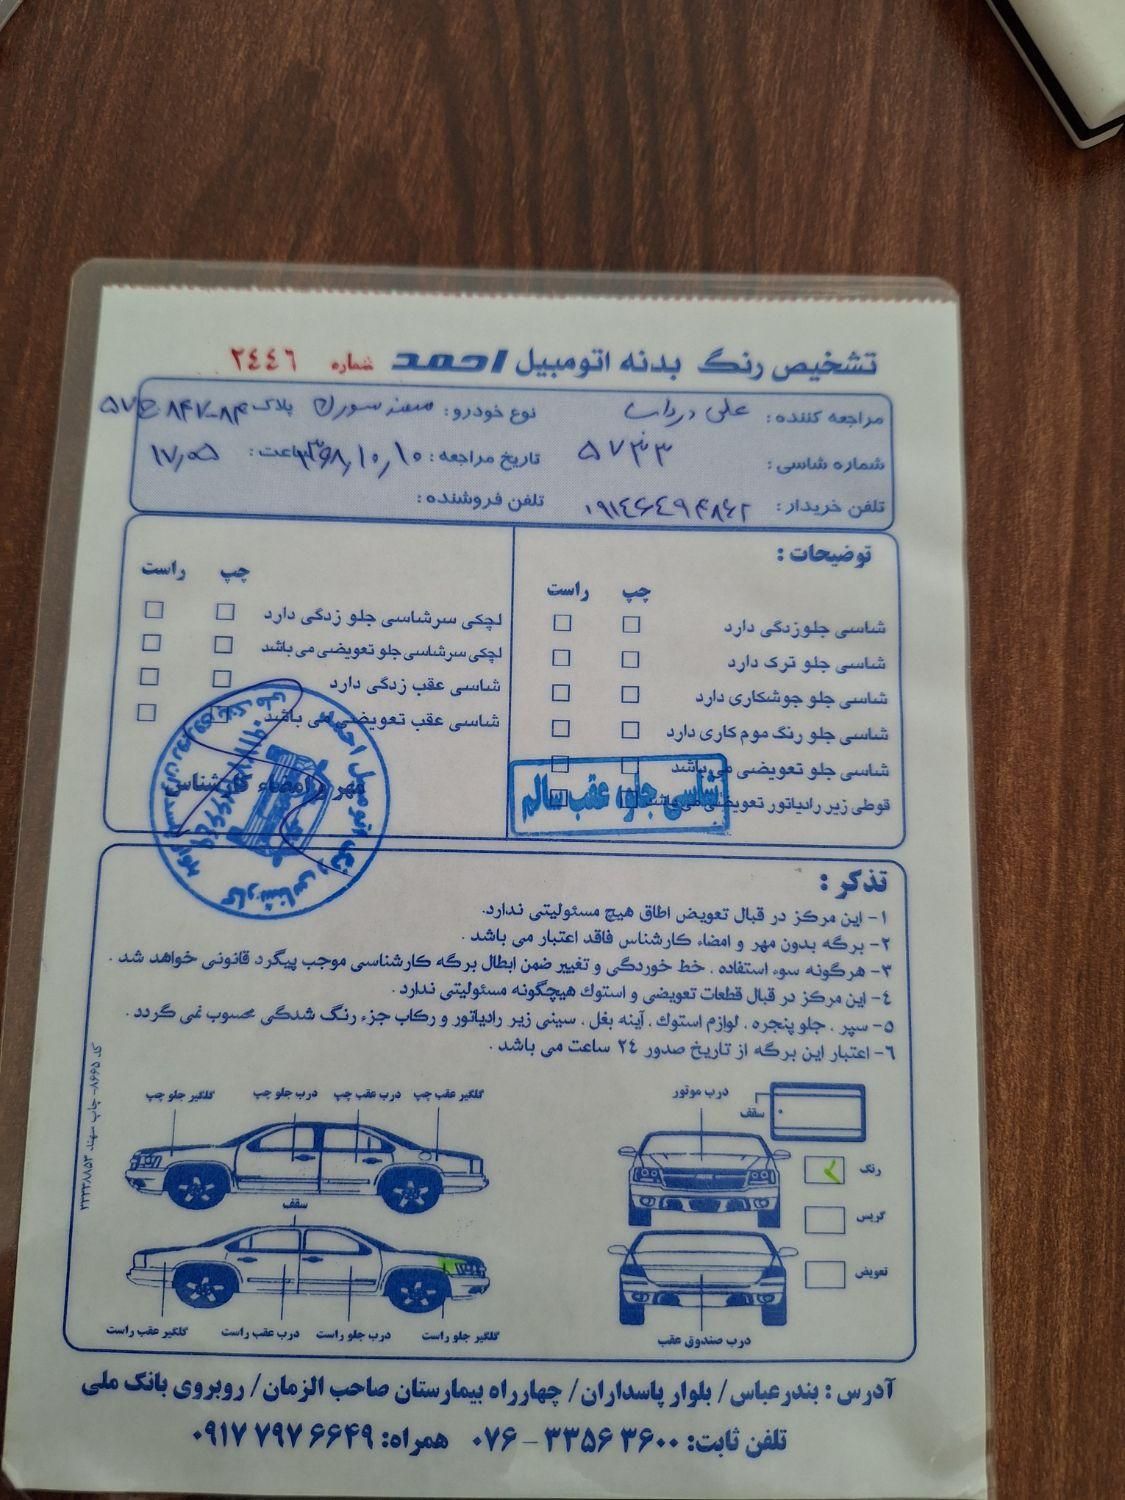 تشخیص رنگ بدنه اتومبیل احمد شماره ۲۴۴۶
مراجعه کننده: علی نوع خودرو: سمند سورن پلاک
شماره شاسی: ۵۷۳۳ تاریخ مراجعه: ۱۰,۱۰ ساعت: ۱۷,۰۵
تلفن خریدار: تلفن فروشنده:
توضیحات:
چپ راست
شاسی جلوزدگی دارد
شاسی جلو ترک دارد
شاسی جلو جوشکاری دارد
شاسی جلو رنگ موم کاری دارد
شاسی جلو تعویضی می باشد
قوطی زیر رادیاتور تعویضی می باشد
شاسی جلو، عقب سالم
چپ راست
لچکی سرشاسی جلو زدگی دارد
لچکی سرشاسی جلو تعویضی می باشد
شاسی عقب زدگی دارد
شاسی عقب تعویضی می باشد
مهر و امضاء کارشناس
تذکر:
۱- این مرکز در قبال تعویض اطاق هیچ مسئولیتی ندارد.
۲- برگه بدون مهر و امضاء کارشناس فاقد اعتبار می باشد.
۳- هرگونه سوء استفاده، خط خوردگی و تغییر ضمن ابطال برگه کارشناسی موجب پیگرد قانونی خواهد شد.
٤- این مرکز در قبال قطعات تعویضی و استوک هیچگونه مسئولیتی ندارد.
۵- سپر، جلو پنجره، لوازم استوک، آینه بغل، سینی زیر رادیاتور و رکاب جزء رنگ شدگی محسوب نمی گردد.
۶- اعتبار این برگه از تاریخ صدور ۲٤ ساعت می باشد.
درب موتور سقف
گلگیر عقب چپ درب عقب چپ درب جلو چپ گلگیر جلو چپ
رنگ
سقف
گریس
تعویض
گلگیر جلو راست درب جلو راست درب عقب راست گلگیر عقب راست
درب صندوق عقب
کد ۸۶۶۵- چاپ سهند ۲۲۲۳۸۸۵۳
آدرس: بندرعباس/ بلوار پاسداران/ چهارراه بیمارستان صاحب الزمان/ روبروی بانک ملی
تلفن ثابت: ۳۳۵۶۳۶۰۰ – ۰۷۶ همراه: ۰۹۱۷ ۷۹۷ ۶۶۴۹